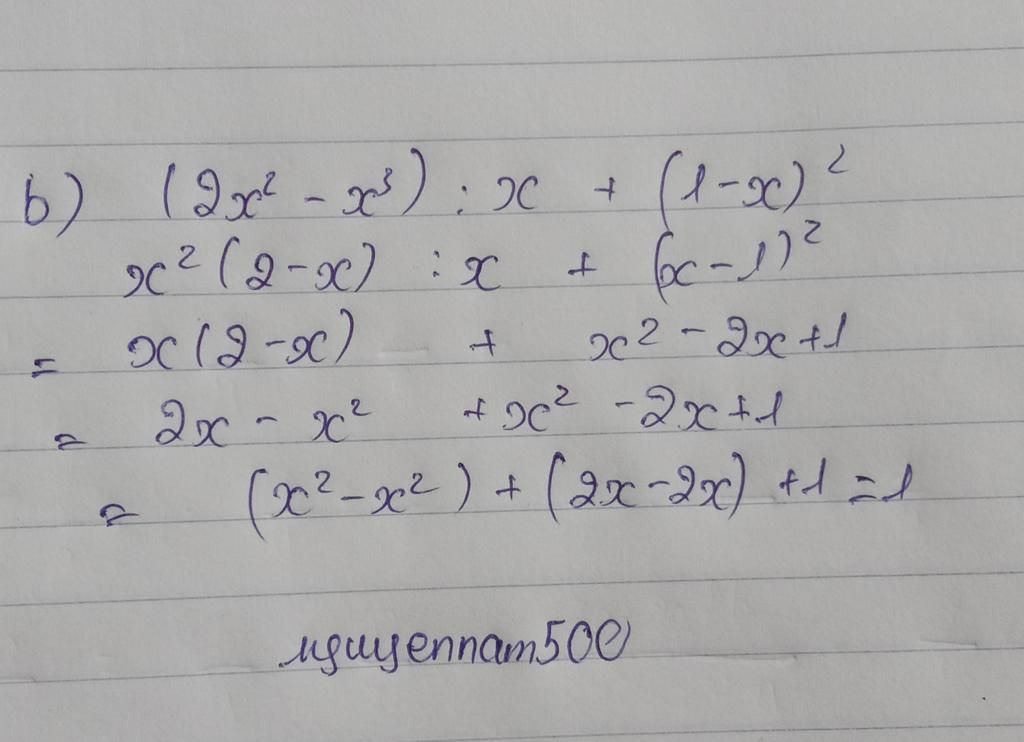 b) (2x² - x³) : x + (1-x)²
x²(2-x) : x + (x-1)²
= x(2-x) + x² - 2x+1
= 2x - x² + x² - 2x+1
= (x² - x²) + (2x-2x) +1 = 1
nguyennam500